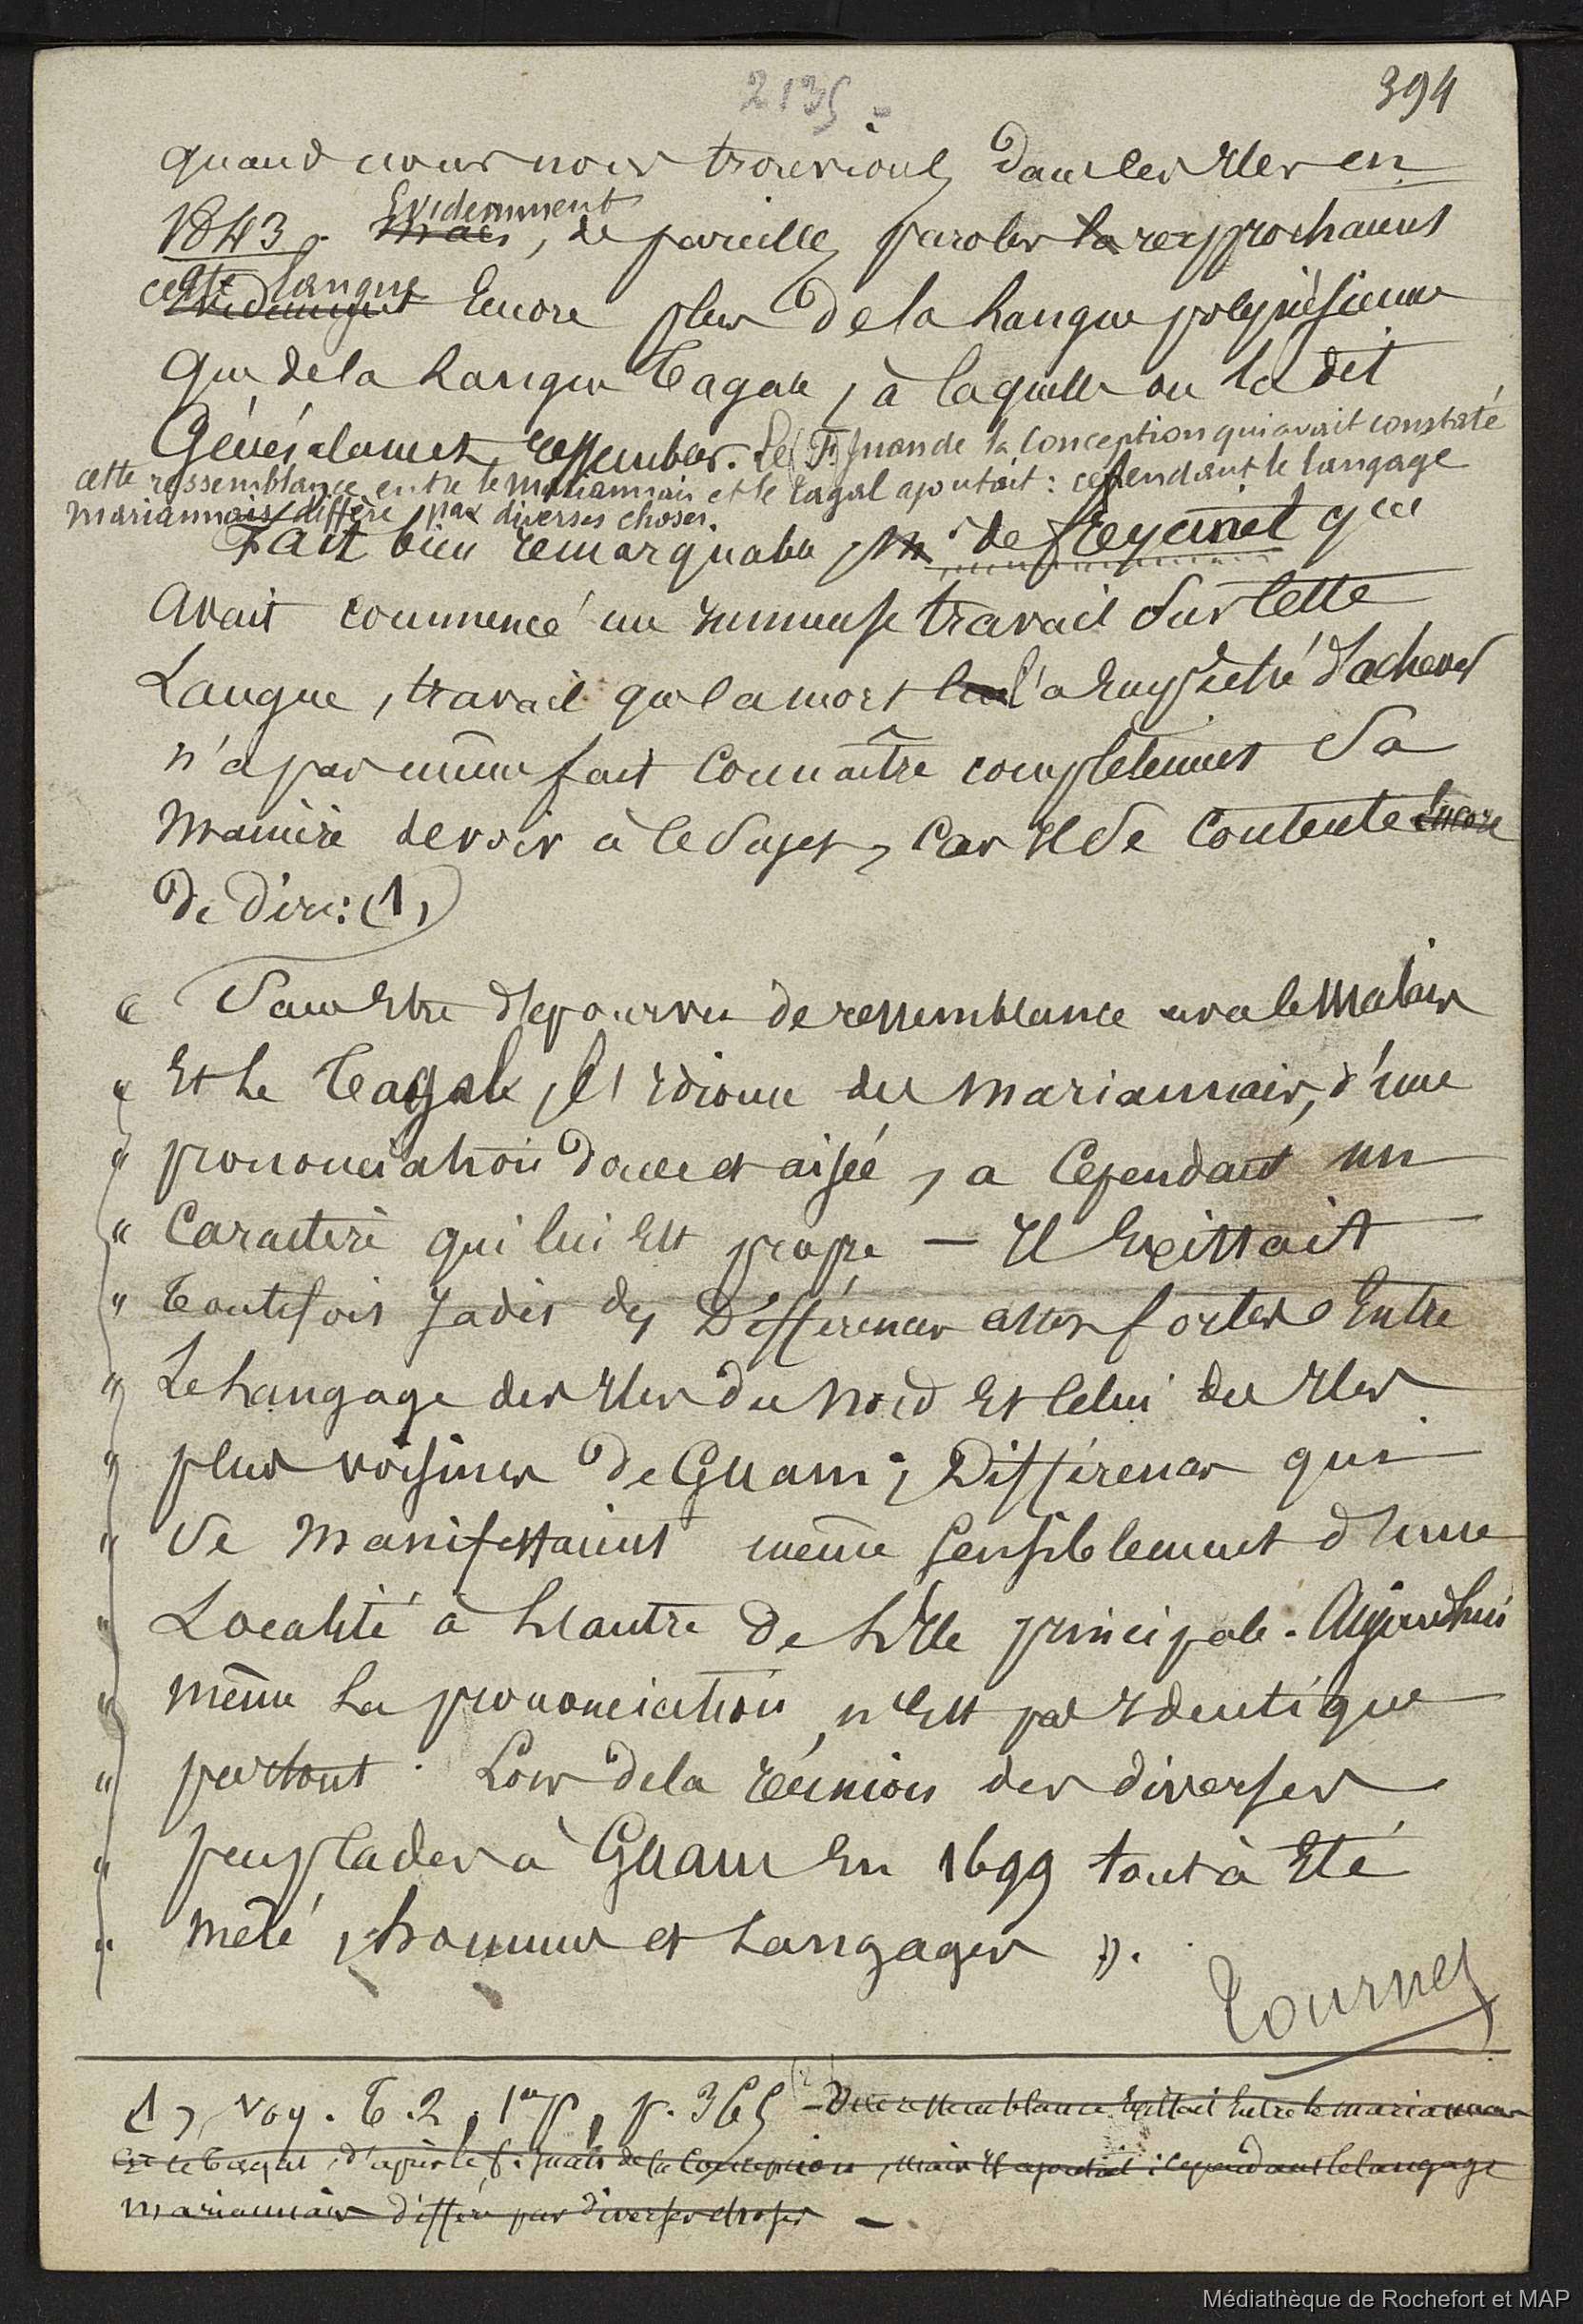 2135 -
394
quand nous nous trouvions dans les Iles en
1843. ~~Mais~~ Evidemment, de pareilles paroles ~~la~~ rapprochaient
~~Evidemment~~ cette langue Encore plus de la Langue polynésienne
que de la Langue Tagale, à laquelle on la dit
Généralement ressembler. Le (F. Juan de la Conception qui avait constaté
cette ressemblance entre le mariannais et le tagal ajoutait : cependant le langage
mariannais diffère par diverses choses.
Fait bien remarquable, M. de Freycinet qui
avait commencé un immense travail sur cette
Langue, travail que la mort ~~lui~~ l'a Empêché d'achever
n'a pas même fait connaître complètement sa
manière de voir à ce sujet, car Il se contente ~~Encore~~
de dire: (1)
" Sans Etre dépourvu de ressemblance avec le Malais
" Et le Tagale, l'Idiome des Mariannais, d'une
" prononciation douce et aisée, a cependant un
" Caractère qui lui Est propre — Il Existait
" Toutefois Jadis des Différences assez fortes Entre
" Le Langage des Iles du Nord Et Celui des Iles
" plus voisines de Guam ; Différences qui
" se Manifestaient même sensiblement d'une
" Localité à L'autre de L'Ile principale. Aujourd'hui
" même La prononciation n'Est pas Identique
" partout. Lors de la réunion des diverses
" peuplades à Guam En 1699 tout à Eté
" mêlé, hommes et Langages ".
Tournez
(1) Voy. T. 2, 1re p, p. 365 (2) ~~- Une ressemblance Existait Entre le mariannais~~
~~Et le tagal, d'après le f. Juan de la Conception, mais Il ajoutait : cependant le langage~~
~~Mariannais diffère par diverses choses~~ —
Médiathèque de Rochefort et MAP